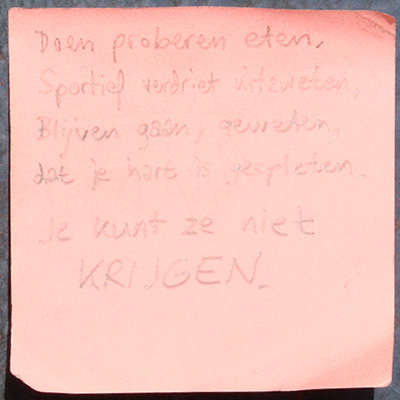 Doen proberen eten,
Sportief verdriet uitzweten,
Blijven gaan, geweten,
dat je hart is gespleten.
Je kunt ze niet
KRIJGEN.